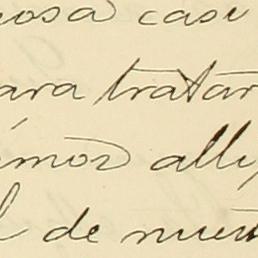 osa casi
ara tratar
imos alli,
l de nues